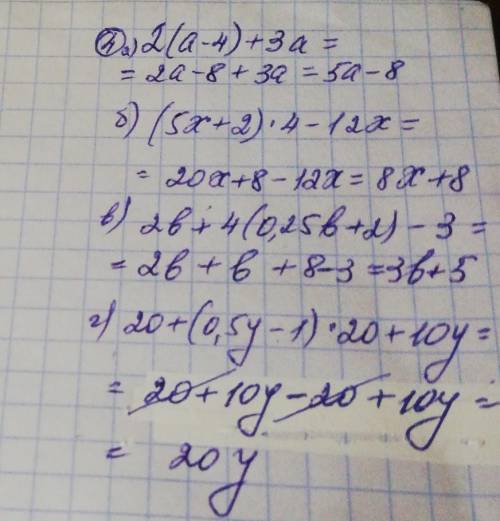 4 а) 2(a-4)+3a=
= 2a-8+3a=5a-8
б) (5x+2)·4-12x=
= 20x+8-12x=8x+8
в) 2b+4(0,25b+2)-3=
= 2b+b+8-3=3b+5
г) 20+(0,5y-1)·20+10y=
= 20+10y-20+10y=
= 20y